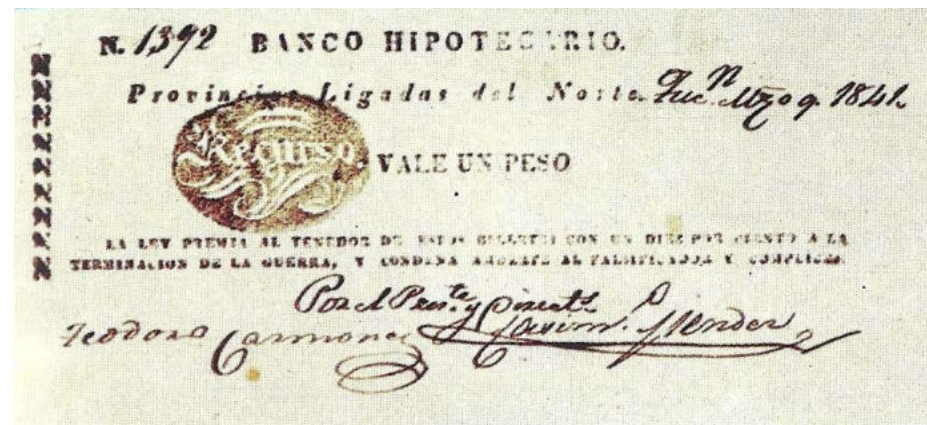 N. 1392 BANCO HIPOTECARIO.
Provincias Ligadas del Norte. Tuc.n Mzo 9. 1841.
Recurso
VALE UN PESO
LA LEY PREMIA AL TENEDOR DE ESTOS BILLETES CON UN DIEZ POR CIENTO A LA
TERMINACION DE LA GUERRA, Y CONDENA AL FALSIFICADOR Y COMPLICES.
Por el Pres.te y
Teodoro Carmona Mendez